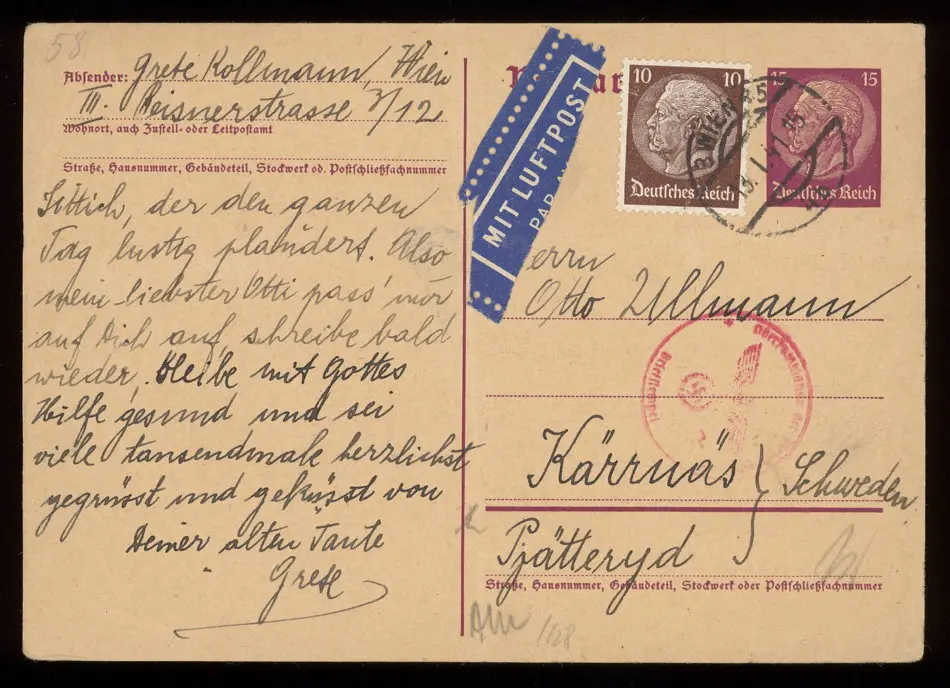 58
Absender: Grete Kollmann, Wien
III. Reisnerstrasse 3/12
Wohnort, auch Zustell- oder Leitpostamt
Straße, Hausnummer, Gebäudeteil, Stockwerk od. Postschließfachnummer
Sittich, der den ganzen
Tag lustig plaudert. Also
mein liebster Otti pass' nur
auf Dich auf, schreibe bald
wieder, bleibe mit Gottes
Hilfe gesund und sei
viele tausendmale herzlichst
gegrüsst und geküsst von
Deiner alten Tante
Grete
MIT LUFTPOST
PAR
10 10
Deutsches Reich
15 15
Deutsches Reich
WIEN
Herrn
Otto Ullmann
Kärrnäs
Schweden
Pjätteryd
Straße, Hausnummer, Gebäudeteil, Stockwerk oder Postschließfachnummer